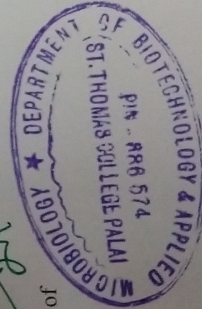 DEPARTMENT OF BIOTECHNOLOGY & APPLIED MICROBIOLOGY ★
ST. THOMAS COLLEGE PALAI
PIN - 686 574
fo